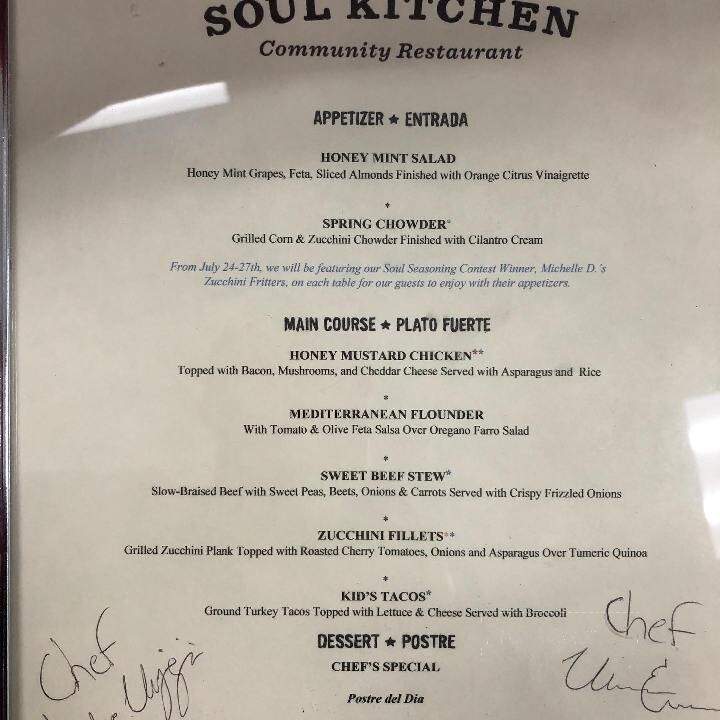 SOUL KITCHEN
Community Restaurant
APPETIZER ★ ENTRADA
HONEY MINT SALAD
Honey Mint Grapes, Feta, Sliced Almonds Finished with Orange Citrus Vinaigrette
*
SPRING CHOWDER*
Grilled Corn & Zucchini Chowder Finished with Cilantro Cream
From July 24-27th, we will be featuring our Soul Seasoning Contest Winner, Michelle D.'s
Zucchini Fritters, on each table for our guests to enjoy with their appetizers.
MAIN COURSE ★ PLATO FUERTE
HONEY MUSTARD CHICKEN**
Topped with Bacon, Mushrooms, and Cheddar Cheese Served with Asparagus and Rice
*
MEDITERRANEAN FLOUNDER
With Tomato & Olive Feta Salsa Over Oregano Farro Salad
*
SWEET BEEF STEW*
Slow-Braised Beef with Sweet Peas, Beets, Onions & Carrots Served with Crispy Frizzled Onions
*
ZUCCHINI FILLETS**
Grilled Zucchini Plank Topped with Roasted Cherry Tomatoes, Onions and Asparagus Over Tumeric Quinoa
*
KID'S TACOS*
Ground Turkey Tacos Topped with Lettuce & Cheese Served with Broccoli
DESSERT ★ POSTRE
CHEF'S SPECIAL
Postre del Dia
Chef
Chef